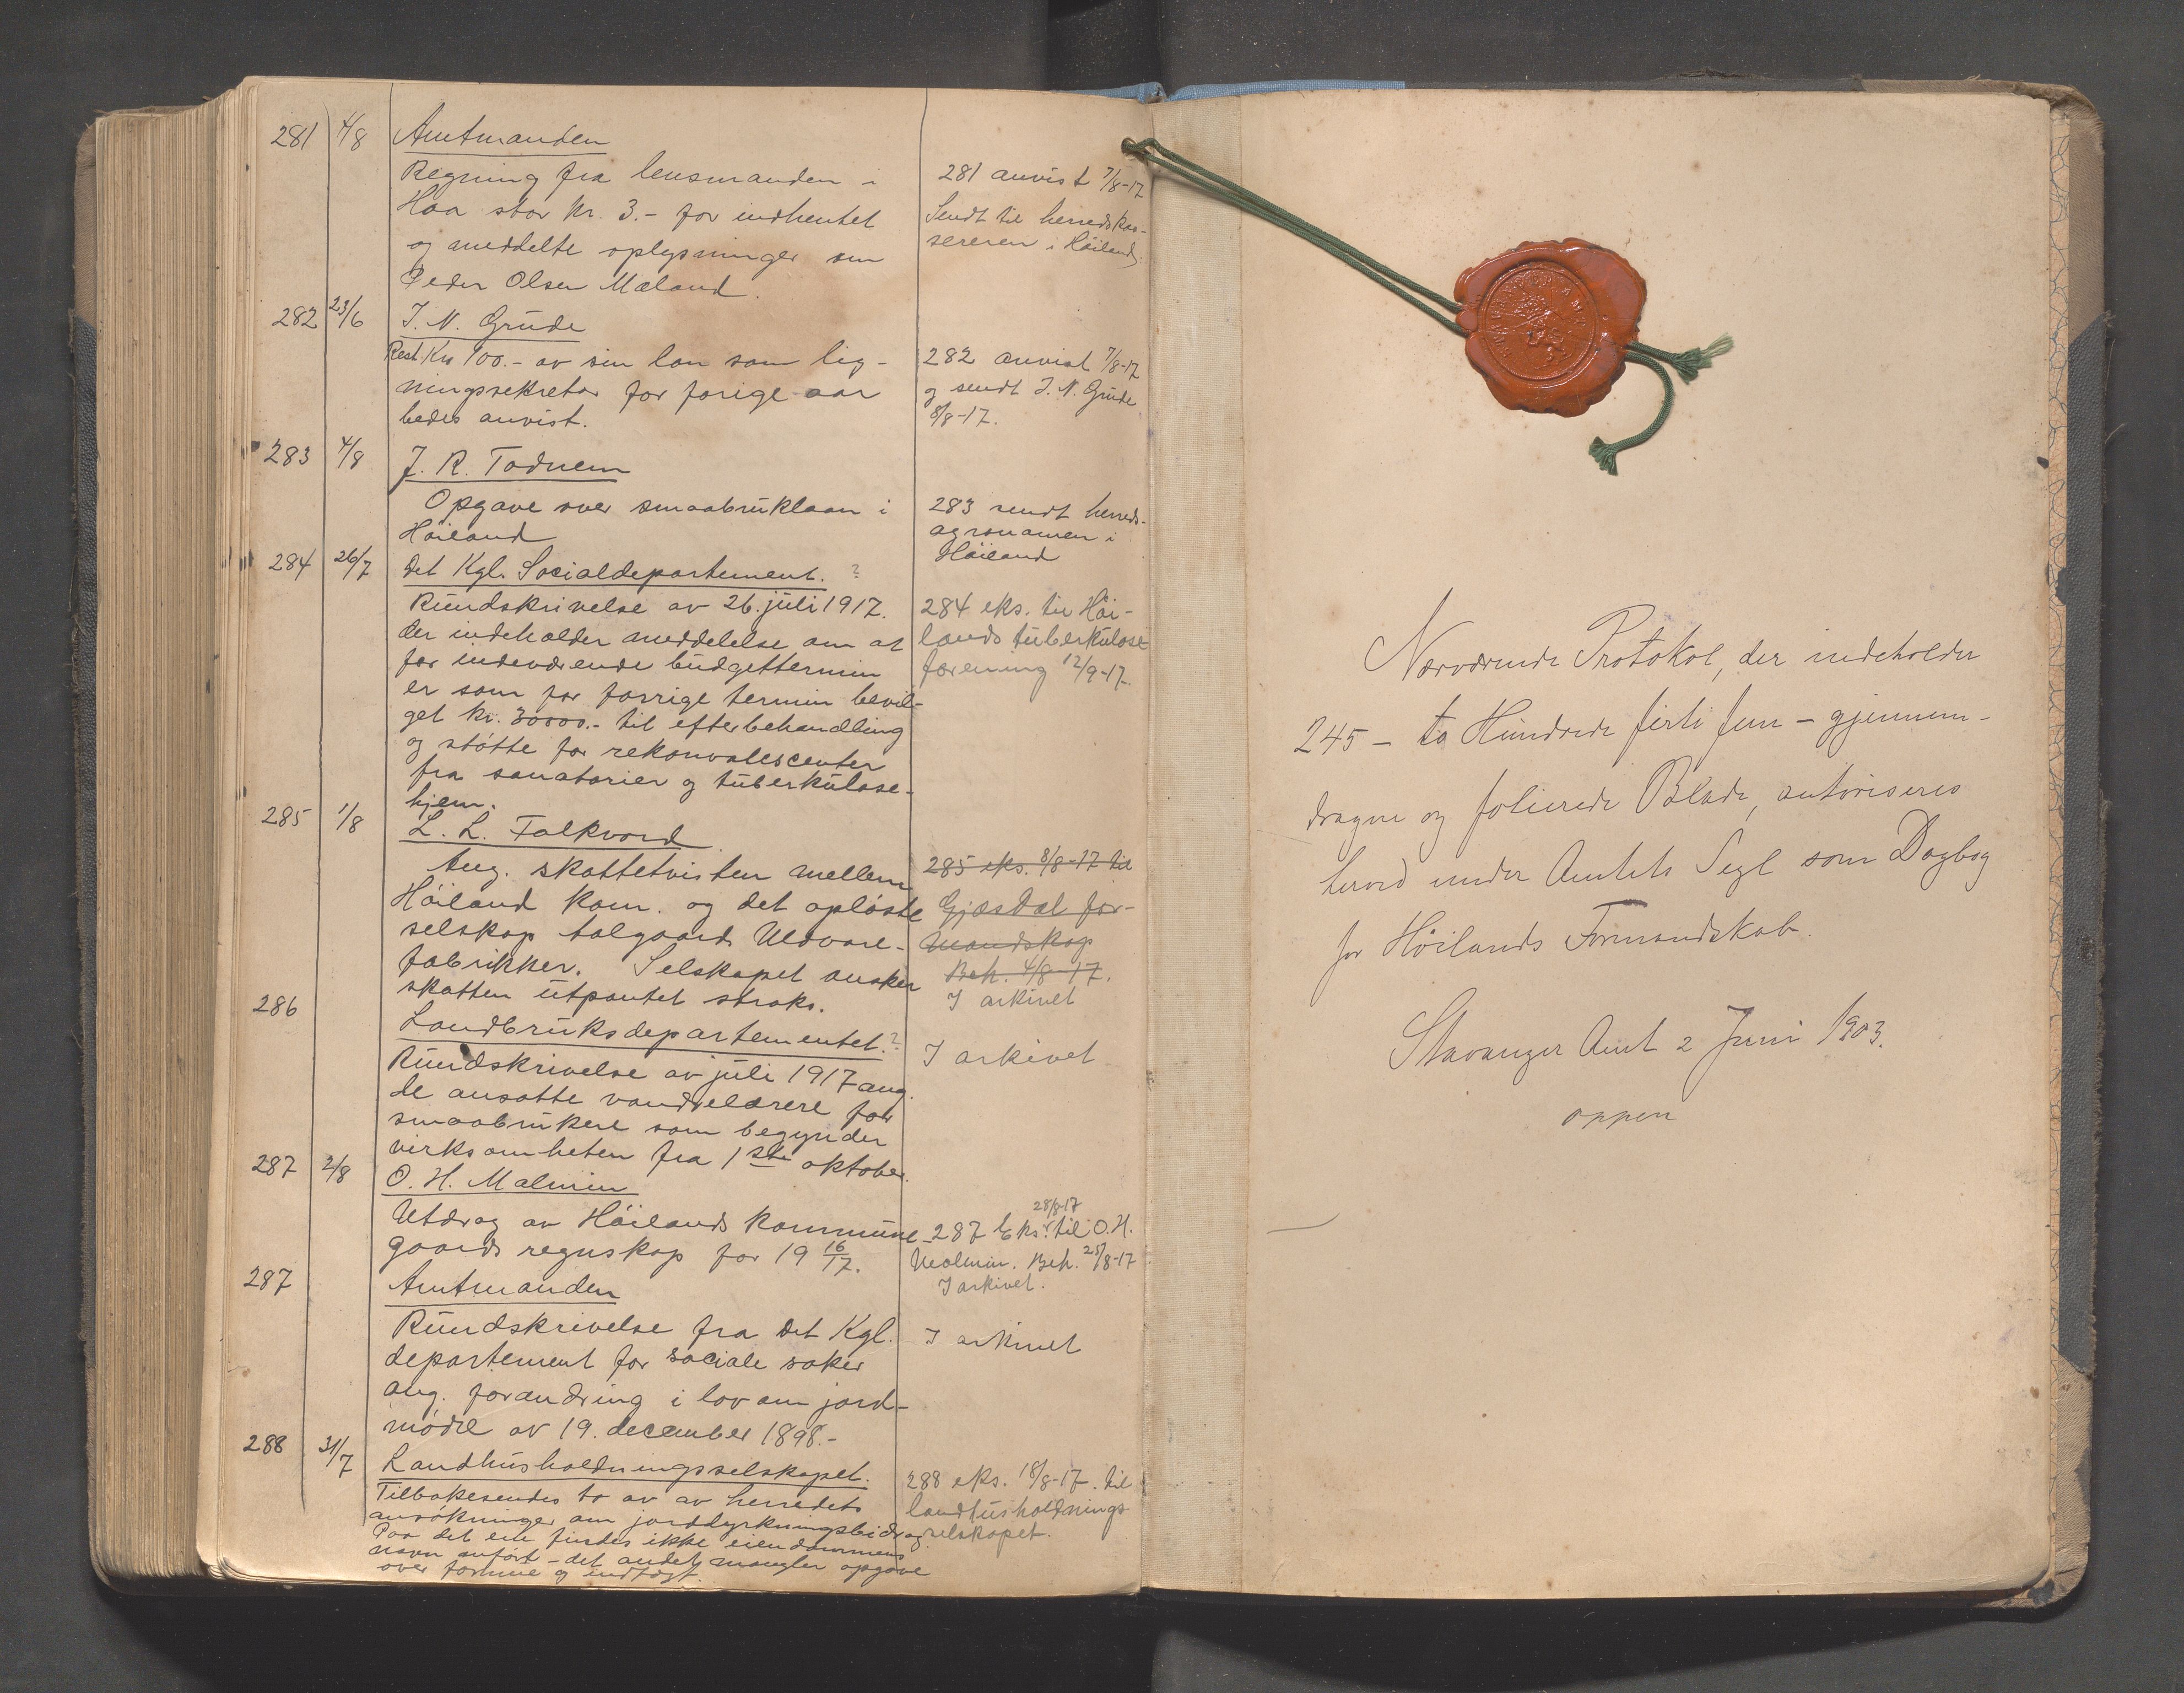 281 4/8 Amtmanden
Regning fra lensmanden i
Haa stor kr. 3.- for indhentet
og meddelte oplysninger om
Peder Olsen Mæland.
281 anvist 7/8-17
Sendt til herredskas-
sereren i Höiland.
282 23/6 J. N. Grude
Rest Kr 100.- av sin løn som lig-
ningssekretær for forige aar
bedes anvist.
282 anvist 7/8-17
og sendt J. N. Grude
8/8-17.
283 4/8 J. R. Todnem
Opgave over smaabruklaan i
Höiland
283 sendt herreds-
agronomen i
Höiland
284 26/7 Det Kgl. Socialdepartement. ?
Rundskrivelse av 26. juli 1917.
der indeholder meddelelse om at
for indeværende budgettermin
er som for forrige termin bevil-
get kr. 30000.- til efterbehandling
og støtte for rekonvalescenter
fra sanatorier og tuberkulose-
hjem.
284 eks. til Höi-
lands tuberkulose
forening 12/9-17.
285 1/8 L. L. Folkvord
Ang. skattetvisten mellem
Höiland kom. og det opløste
selskap Aalgaards Uldvare-
fabrikker. Selskapet ønsker
skatten utpantet straks.
285 eks. 8/8-17 til
Gjæsdal for-
mandskap
Beh. 4/8-17.
I arkivet
286 Landbruksdepartementet. ?
Rundskrivelse av juli 1917 ang.
de ansatte vandrelærere for
smaabrukere som begynder
virksomheten fra 1ste oktober.
I arkivet
287 2/8 O. H. Malmin
Utdrag av Höilands kommune-
gaards regnskap for 19 16/17.
28/8-17
287 Eks. til O. H.
Malmin. Beh. 25/8-17
I arkivet.
287 Amtmanden
Rundskrivelse fra det Kgl.
departement for sociale saker
ang. forandring i lov om jord-
mødre av 19. december 1898.-
I arkivet
288 31/7 Landhusholdningsselskapet.
Tilbakesendes to av av herredets
ansökninger om jorddyrkningsbidrag
Paa det ene findes ikke eiendommens
navn anført - det andet mangler opgave
over formue og indtægt.
288 eks. 18/8-17. til
landhusholdnings
selskapet.
Nærværende Protokol, der indeholder
245 - to Hundrede firti fem - gjennem-
dragne og folierede Blade, autoriseres
herved under Amtets Segl som Dagbog
for Höilands Formandskab.
Stavanger Amt 2 Juni 1903.